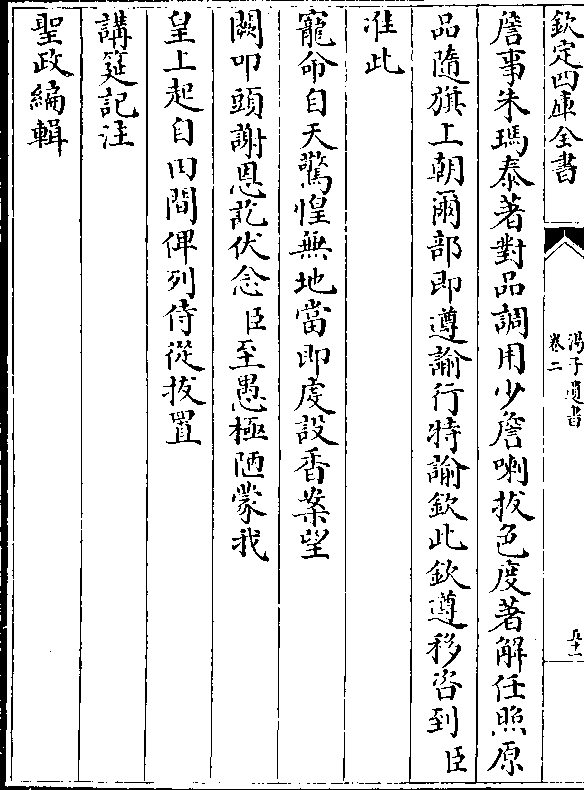 欽定四庫全書
湯子遺書
卷二
五十一
詹事朱瑪泰著對品調用少詹喇拔色度著解任照原
品隨旗上朝爾部即遵諭行特諭欽此欽遵移咨到臣
准此
寵命自天驚惶無地當即虔設香案望
闕叩頭謝恩訖伏念臣至愚極陋蒙我
皇上起自田間俾列侍從拔置
講筵記注
聖政編輯